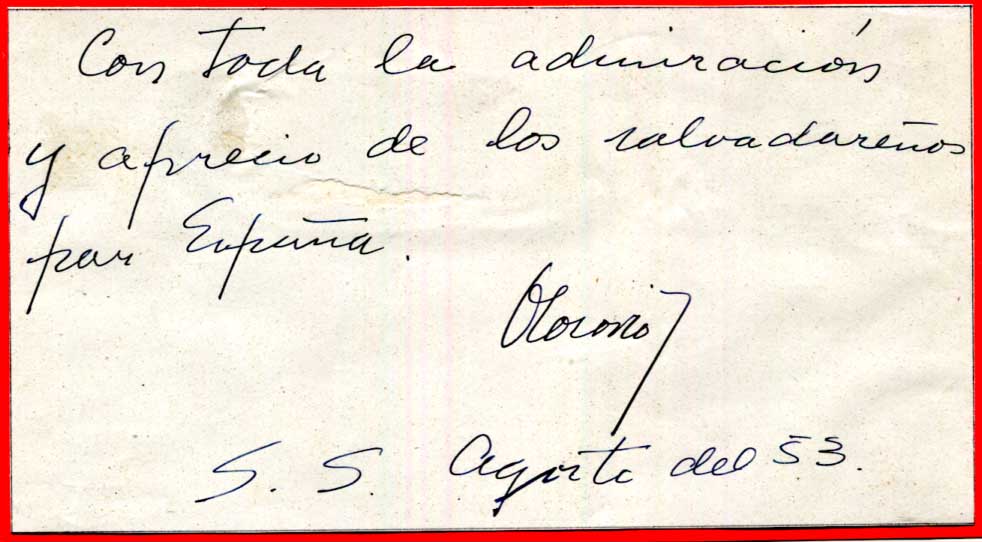 Con toda la admiración
y aprecio de los salvadoreños
por España.
OOsorio
S. S. Agosto del 53.